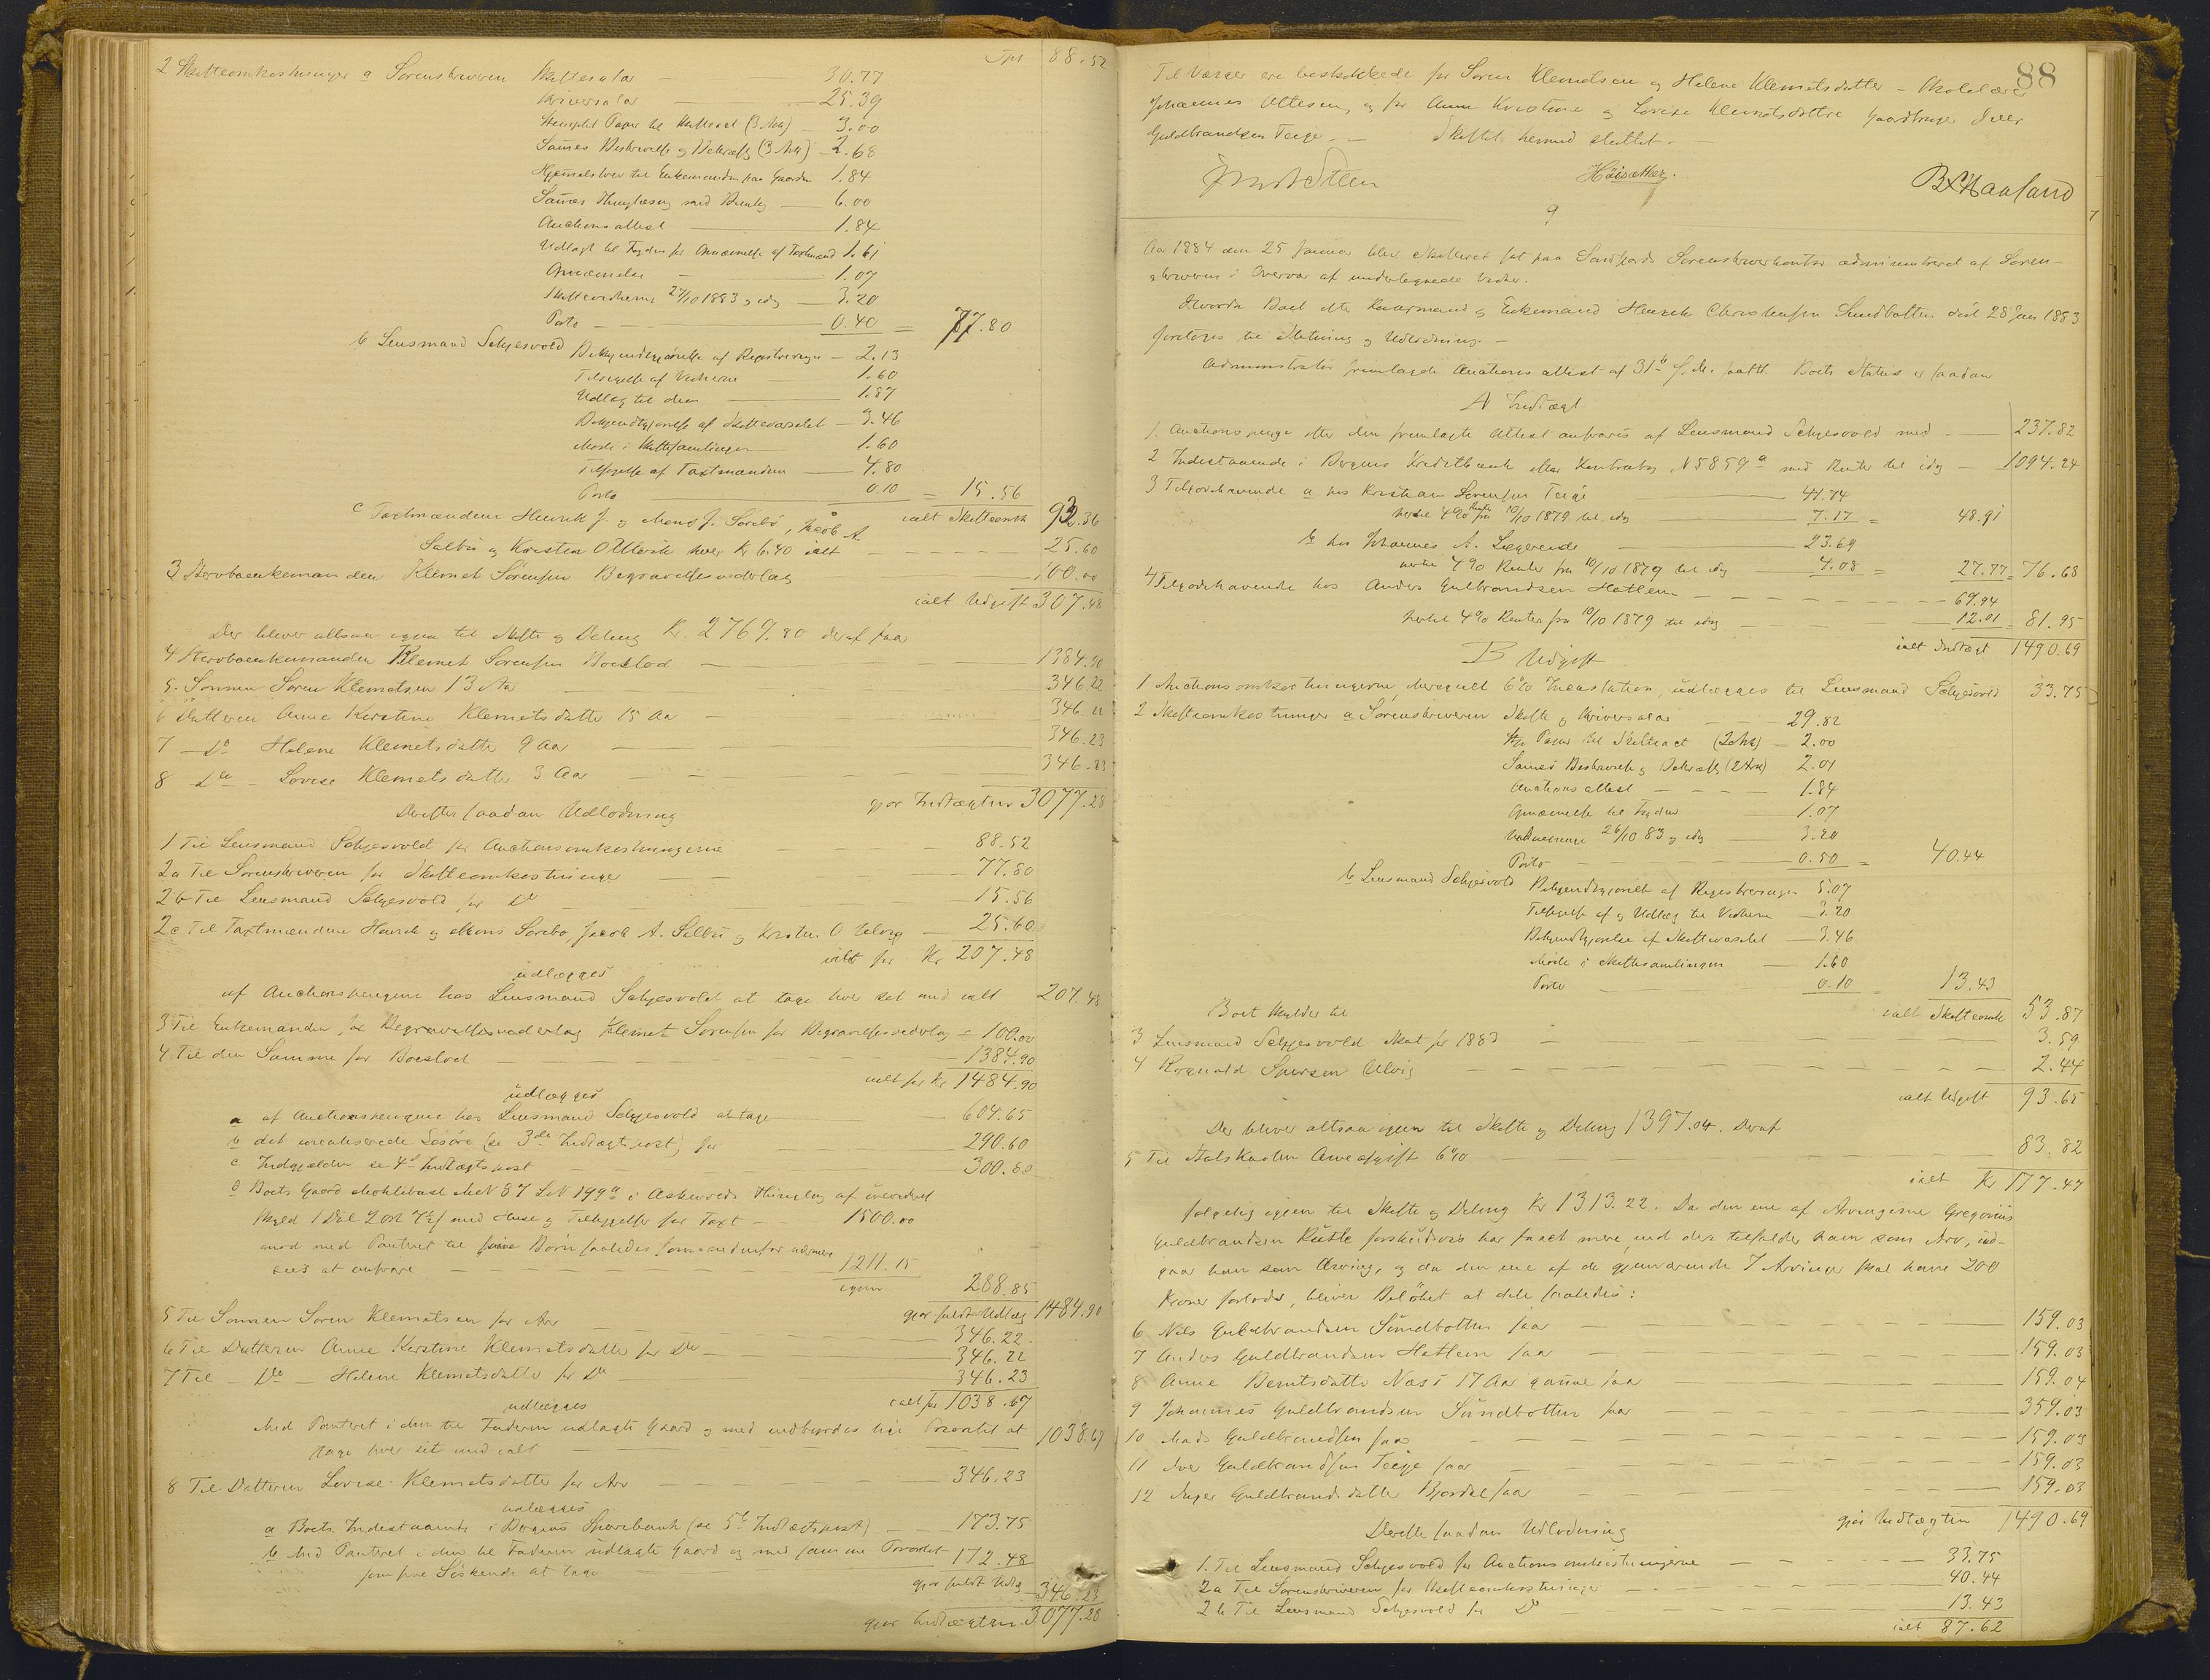 Tpt 88.52
2 Skifteomkostninger a Sorenskriveren Skiftesalær — 30.77
Skriversalær — 25.39
Stemplet Papir til Skifteact (3 Ark) — 3.00
Sammes Beskrivelse og Bekræft (3 Ark) — 2.68
Hjemmelsbrev til Enkemanden paa Gaarden 1.84
Sammes Thinglæsning med — 6.00
Auctionsattest — 1.84
Udlagt til Fogden for Opnævnelse af Taxtmænd 1.61
Opnævnelse — 1.07
Skiftevidnerne 27/10 1883 og idag — 3.20
Porto — 0.40 = 77.80
b Lensmand Selgesvold Bekjendtgjørelse af Registreringen — 2.13
Tilsigelse af Vidnerne — 1.60
Udlæg til dem — 1.87
Bekjendtgjørelse af Skiftevarselet — 3.46
Møde i Skiftesamlingen — 1.60
Tilsigelse af Taxtmændene — 4.80
Porto — 0.10 = 15.56
ialt Skifteomk 93.36
c Taxtmændene Henrik J. og Mons J. Sørebø, Jacob A.
Selbø og Kristen O Ulevik hver Kr 6.40 ialt — 25.60
3 Stervboenkemanden Klemet Sørensen Begravelsesvederlag — 100.00
ialt Udgift 307.48
Der bliver altsaa igjen til Skifte og Deling Kr. 2769.80 deraf faar
4 Stervboenkemanden Klemet Sørensen Boeslod — 1384.90
5. Sønnen Søren Klemetsen 13 Aar — 346.22
6 Datteren Anne Kirstine Klemetsdatter 15 Aar — 346.22
7 — Do Helene Klemetsdatter 9 Aar — 346.23
8 Do — Lovise Klemetsdatter 3 Aar — 346.23
gjør Indtægten 3077.28
Derefter saadan Udlodning
1 Til Lensmand Selgesvold for Auctionsomkostningerne — 88.52
2a Til Sorenskriveren for Skifteomkostninger — 77.80
2b Til Lensmand Selgesvold for Do — 15.56
2c Til Taxtmændene Henrik og Mons Sørebø, Jacob A. Selbø og Kristen O Ulevig — 25.60
ialt for Kr 207.48
udlægges
af Auctionspengene hos Lensmand Selgesvold at tage hver sit med ialt 207.48
3 Til Enkemanden for Begravelsesvederlag Klemet Sørensen for Begravelsesvederlag = 100.00
4 Til den Samme for Boeslod — 1384.90
ialt for Kr 1484.90
udlægges
a af Auctionspengene hos Lensmand Selgesvold at tage — 604.65
b det urealiserede Løsøre (se 3die Indtægtspost) for — 290.60
c Indgjælden se 4de Indtægtspost — 300.80
d Boets Gaard MN 87 LN 199a i Askevolds Thinglag af urevideret
Skyld 1 Dal 2 ort 7½ s med Huse og Tilliggelse for Taxt — 1500.00
mod med Panteret til fire Børn saaledes som nedenfor nærmere
sees at ansvare — 1211.15
igjen 288.85
gjør fuldt Udlæg 1484.90
5 Til Sønnen Søren Klemetsen for Arv — 346.22
6 Til Datteren Anne Kirstine Klemetsdatter for Do — 346.22
7 Til — Do — Helene Klemetsdatter for Do — 346.23
ialt for 1038.67
udlægges
Med Panteret i den til Faderen udlagte Gaard og med indbyrdes lige Prioritet at
tage hver sit med ialt — 1038.67
8 Til Datteren Lovise Klemetsdatter for Arv — 346.23
udlægges
a Boets Indestaaende i Bergens Sparebank (se 5te Indtægtspost) — 173.75
b Med Panteret i den til Faderen udlagte Gaard og med samme Prioritet
som sine Søskende at tage — 172.48
gjør fuldt Udlæg 346.23
gjør Indtægten 3077.28
88
Til Værger ere beskikkede for Søren Klemetsen og Helene Klemetsdatter — Skolelærer
Johannes Ottesen, og for Anne Kirstine og Lovise Klemetsdøttre Gaardbruger Iver
Guldbrandsen Teige — Skiftet hermed sluttet. —
Høisæther.
9
Aar 1884 den 25 Januar blev Skifteret sat paa Søndfjords Sorenskriverkontor administreret af Soren-
skriveren i Overvær af undertegnede Vidner.
Hvorda Boet efter Kaarmand og Enkemand Henrik Christensen Sundbotten død 28 Jan 1883
foretoges til Slutning og Udlodning. —
Administrator fremlagde Auctionsattest af 31te f.M. saalt. Boets Status er saadan
A Indtægt
1. Auctionspenge efter den fremlagte Attest ansvares af Lensmand Selgesvold med — 237.82
2 Indestaaende i Bergens Kreditbank efter Kontrabog N 5859a med Renter til idag — 1094.24
3 Tilgodehavende a hos Kristian Sørensen Teige — 41.74
hertil 4% Renter fra 10/10 1879 til idag — 7.17 = 48.91
b hos Johannes A. — 23.69
hertil 4% Renter fra 10/10 1879 til idag — 4.08 = 27.77 = 76.68
4 Tilgodehavende hos Anders Gulbrandsen Hatlem — 69.94
hertil 4% Renter fra 10/10 1879 til idag — 12.01 = 81.95
ialt Indtægt 1490.69
B Udgift
1 Auctionsomkostningerne, iberegnet 6% Incassation, udlægges til Lensmand Selgesvold 33.75
2 Skifteomkostninger a Sorenskriveren Skifte og Skriversalær — 29.82
St. Papir til Skifteact (2 Ark) — 2.00
Sammes Beskrivelse og Bekræft (2 Ark) 2.01
Auctionsattest — 1.84
Opnævnelse til Fogden 1.07
26/10 83 og idag 3.20
Porto — 0.50 = 40.44
b Lensmand Selgesvold Bekjendtgjørelse af Registreringen 5.07
Tilsigelse af og Udlæg til Vidnerne — 3.20
Bekjendtgjørelse af Skiftevarselet — 3.46
Møde i Skiftesamlingen — 1.60
Porto — 0.10 13.43
ialt Skifteomk 53.87
Boet skylder til
3 Lensmand Selgesvold Skat for 1883 — 3.59
4 Ragnvald — 2.44
ialt Udgift 93.65
Der bliver altsaa igjen til Skifte og Deling 1397.04. Deraf
5 Til Statskassen Arveafgift 6% — 83.82
ialt Kr 177.47
følgelig igjen til Skifte og Deling Kr 1313.22. Da den ene af Arvingerne Gregorius
Guldbrandsen forskudsvis har faaet mere end der tilfalder ham som Arv, ud-
gaar han som Arving, og da den ene af de gjenværende 7 Arvinger skal have 200
Kroner forlods, bliver Beløbet at dele saaledes:
6 Nils Guldbrandsen Sundbotten faar — 159.03
7 Anders Guldbrandsen Hatlem faar — 159.03
8 Anne Berntsdatter Næss 17 Aar gammel faar — 159.04
9 Johannes Guldbrandsen Sundbotten faar — 359.03
10 Mads Guldbrandsen faar — 159.03
11 Iver Guldbrandsen Teige faar — 159.03
12 Inger Guldbrandsdatter faar — 159.03
gjør Indtægten 1490.69
Derefter saadan Udlodning
1. Til Lensmand Selgesvold for Auctionsomkostningerne — 33.75
2a Til Sorenskriveren for Skifteomkostninger — 40.44
2b Til Lensmand Selgesvold for Do — 13.43
ialt 87.62